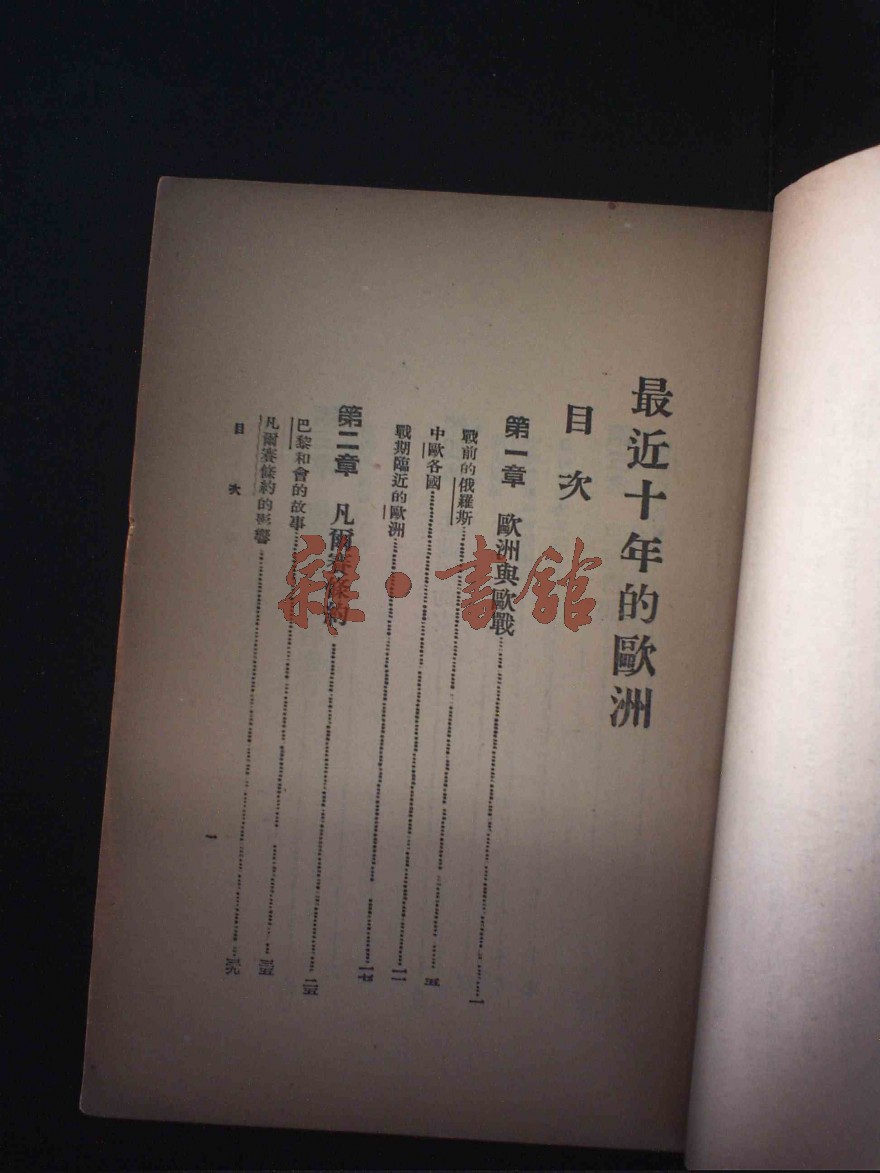 最近十年的歐洲
目次
第一章 歐洲與歐戰……一
戰前的俄羅斯……五
中歐各國……一一
戰期臨近的歐洲……一七
第二章 凡爾賽條約……二五
巴黎和會的故事……三五
凡爾賽條約的影響……三九
目次 一
雜·書館